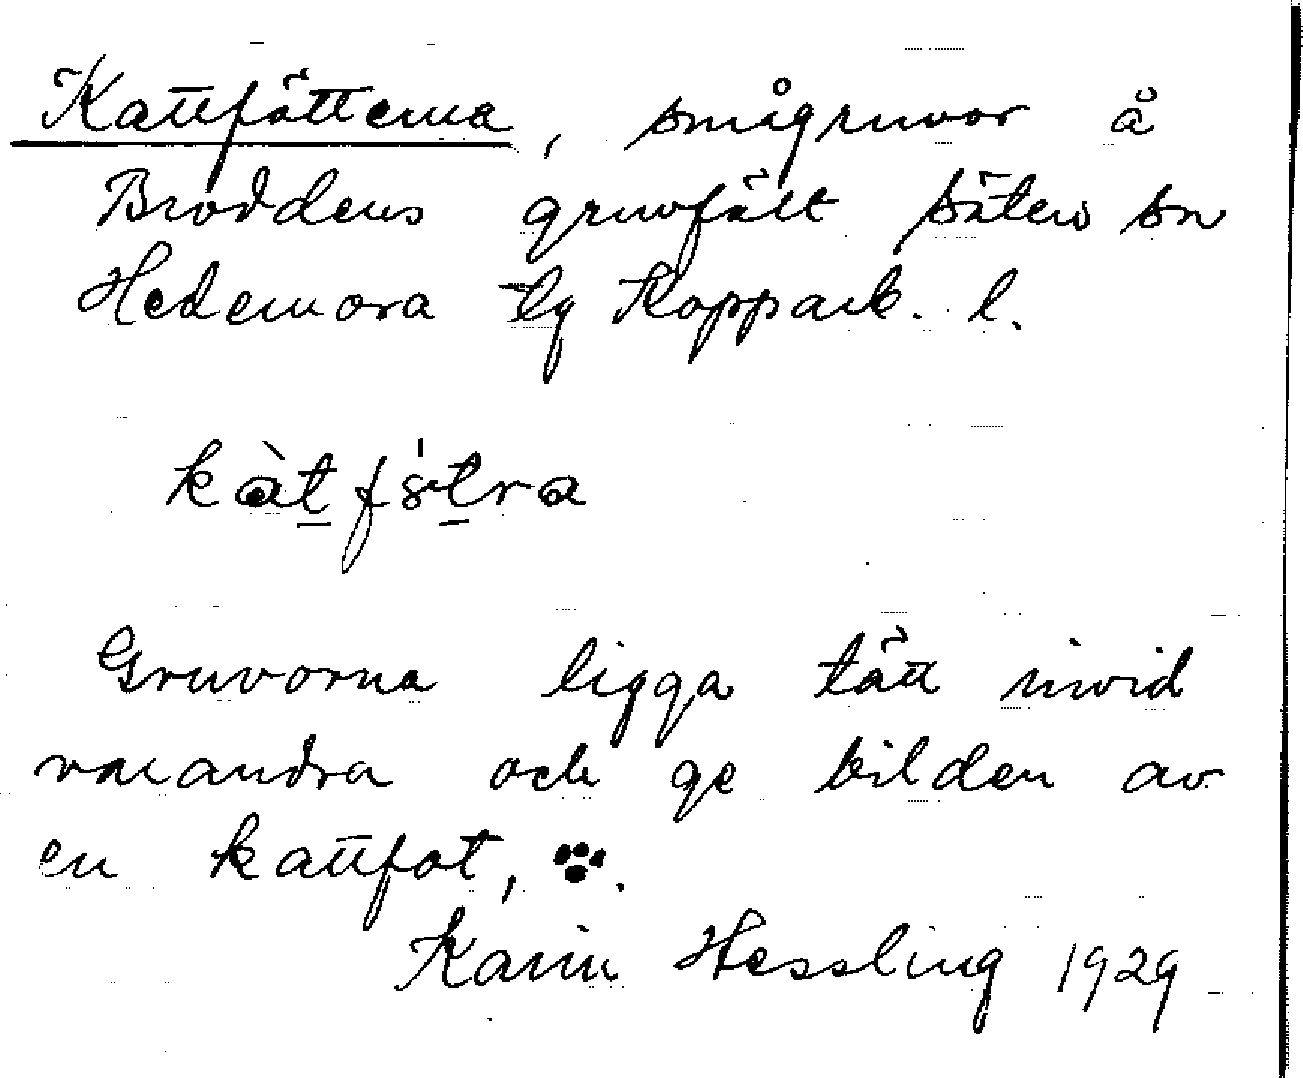 Kattfötterna, smågruvor å
Broddens gruvfält Säters sn
Hedemora tg Koppark. l.
kàtfstra
Gruvorna ligga tätt invid
varandra och ge bilden av
en kattfot, .
Karin Hessling 1929